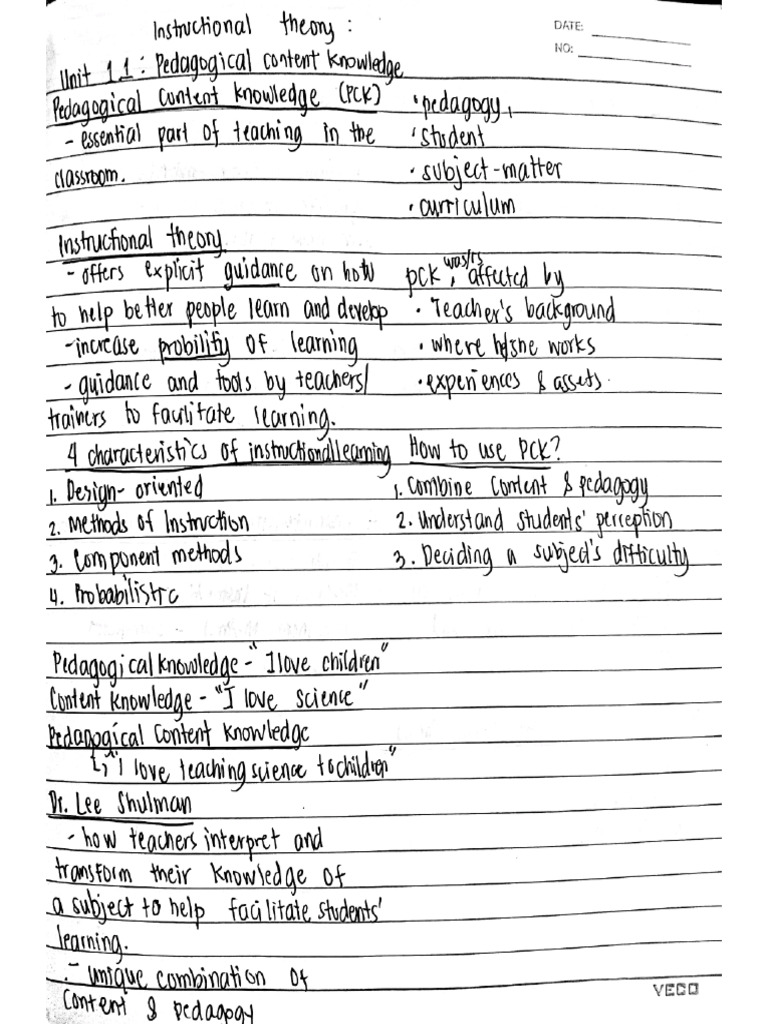 Instructional theory :
DATE:
NO:
Unit 1.1 : Pedagogical content knowledge
Pedagogical Content Knowledge (PCK)
- essential part of teaching in the
classroom.
• pedagogy,
• student
• subject-matter
• curriculum
Instructional theory
- offers explicit guidance on how
to help better people learn and develop
- increase probility of learning
- guidance and tools by teachers/
trainers to facilitate learning.
PCK was/is affected by
• Teacher's background
• where he/she works
• experiences & assets.
4 characteristics of instructional learning
1. Design-oriented
2. Methods of Instruction
3. Component methods
4. Probabilistic
How to use PCK?
1. Combine Content & pedagogy
2. Understand students' perception
3. Deciding a subject's difficulty
Pedagogical knowledge - "I love children"
Content Knowledge - "I love science"
Pedagogical Content Knowledge
↳ "I love teaching science to children"
Dr. Lee Shulman
- how teachers interpret and
transform their knowledge of
a subject to help facilitate students'
learning.
- unique combination of
content & pedagogy
VECO